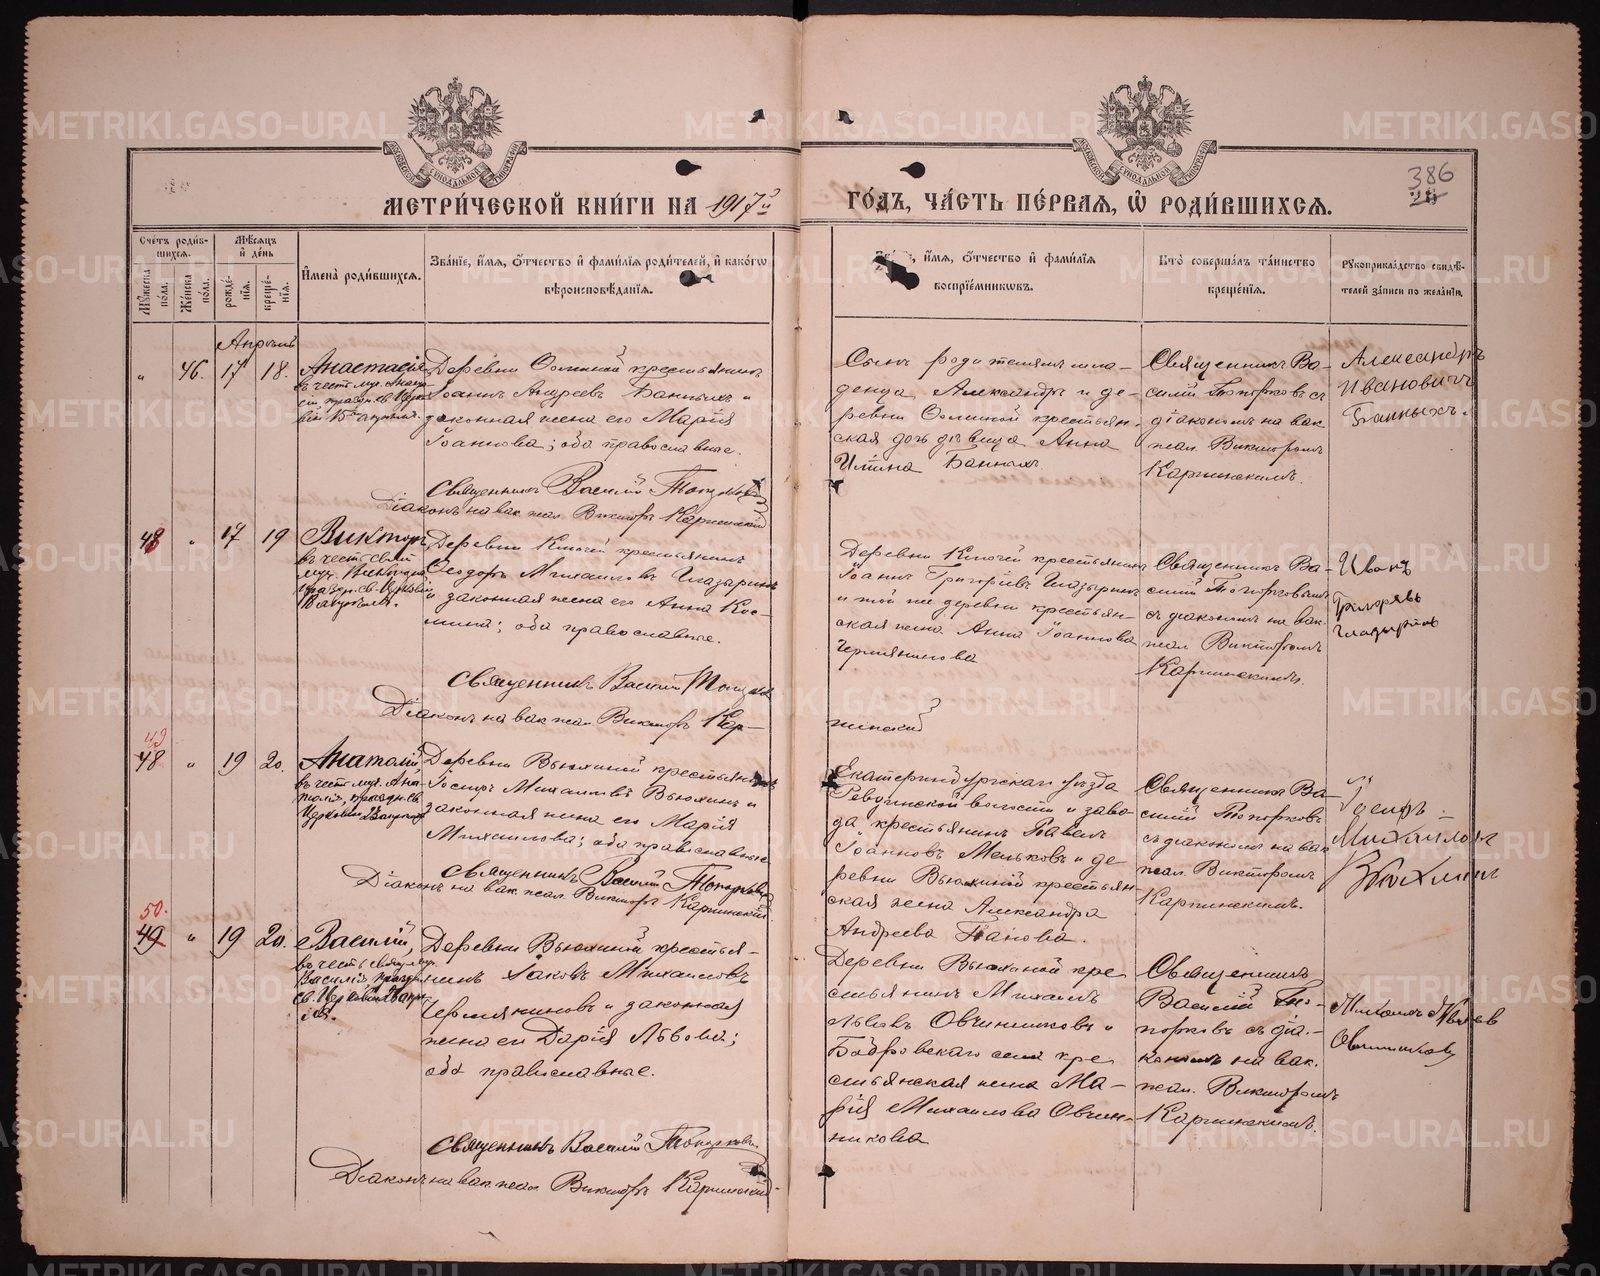 386
МЕТРИ́ЧЕСКОЙ КНИ́ГИ НА 1917й
ГО́ДЪ, ЧА́СТЬ ПЕ́РВАЯ, Ѡ РОДИ́ВШИХСЯ.
Сче́тъ роди́в-
шихся.
Му́жеска по́ла.
Же́нска по́ла.
Мѣ́сяцъ и де́нь
рожде́-
нїя.
креще́-
нїя.
И́мена роди́вшихся.
Зва́нїе, и́мя, ѻ́тчество и фами́лїя роди́телей, и како́гѡ
вѣроисповѣ́данїя.
и́мя, ѻ́тчество и фами́лїя
воспрїе́мникѡвъ.
Кто̀ соверша́лъ та́инство
креще́нїя.
Рукоприкла́дство свидѣ́-
телей за́писи по жела́нїю.
Апрѣль
" 46. 17 18.
Анастасія
Деревни Осиной крестьянинъ
Іоаннъ Андреевъ Банныхъ и
законная жена его Марія
Іоаннова; оба православные.
Священникъ Василій Топорковъ
Діаконъ на вак. псал. Викторъ Карпинскій
Сынъ родителямъ мла-
денца Александръ и де-
ревни Осиной крестьян-
ская дочь дѣвица Анна
Банныхъ
Священникъ Ва-
силій Топорковъ съ
діакономъ на вак.
псал. Викторомъ
Карпинскимъ.
Александръ
Ивановичъ
Банныхъ.
48 " 17 19
Викторъ
Деревни Ключей крестьянинъ
Ѳеодоръ Михаиловъ Глазыринъ
и законная жена его Анна Кос-
мина; оба православные.
Священникъ Василій Топорковъ
Діаконъ на вак. псал. Викторъ Кар-
пинскій
Деревни Ключей крестьянинъ
Іоаннъ Григоріевъ Глазыринъ
и той же деревни крестьян-
ская жена Анна Іоаннова
Чермянинова
Священникъ Ва-
силій Топорковъ
съ діакономъ на вак.
псал. Викторомъ
Карпинскимъ.
Иванъ
Глазыринъ
49
48 " 19 20.
Анатолій
въ честь муч. Ана-
толія, праздн. св.
Церковію 23 апрѣля
Деревни Вьюхиной крестьянинъ
Іосифъ Михаиловъ Вьюхинъ и
законная жена его Марія
Михаилова; оба православные
Священникъ Василій Топорковъ
Діаконъ на вак. псал. Викторъ Карпинскій.
Екатеринбургскаго уѣзда
Ревдинской волости и заво-
да крестьянинъ Павелъ
Іоанновъ Мельковъ и де-
ревни Вьюхиной крестьян-
ская жена Александра
Андреева Панова.
Священникъ Ва-
силій Топорковъ
съ діакономъ на вак.
псал. Викторомъ
Карпинскимъ.
Михаиловъ
Вьюхинъ
50.
49 " 19 20.
Василій,
Деревни Вьюхиной крестья-
нинъ Іаковъ Михаиловъ
Чермяниновъ и законная
жена его Дарія Львова;
оба православные.
Священникъ Василій Топорковъ
Діаконъ на вак. псал. Викторъ Карпинскій.
Деревни Вьюхиной кре-
стьянинъ Михаилъ
Львовъ Овчинниковъ и
Бобровскаго села кре-
стьянская жена Ма-
рія Михаилова Овчин-
никова
Священникъ
Василій То-
порковъ съ діа-
кономъ на вак.
псал. Викторомъ
Карпинскимъ.
Михаилъ Львовъ
Овчинниковъ
METRIKI.GASO-URAL.RU